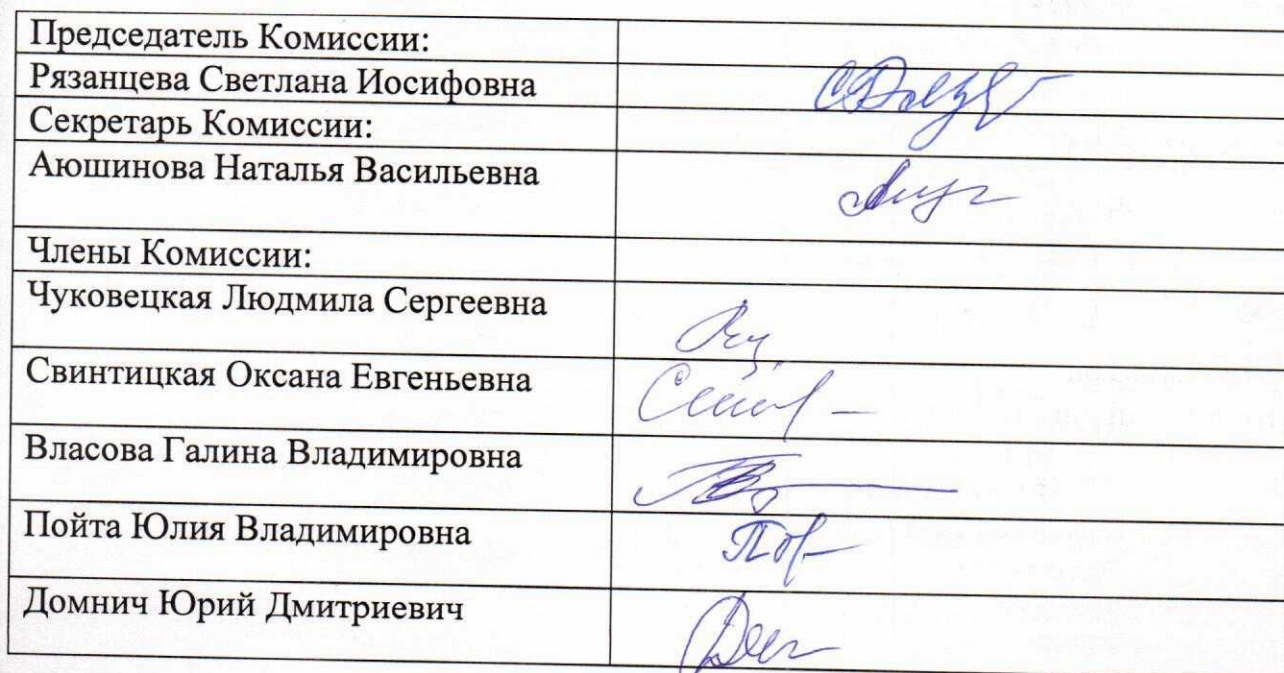 Председатель Комиссии:
Рязанцева Светлана Иосифовна
Секретарь Комиссии:
Аюшинова Наталья Васильевна
Члены Комиссии:
Чуковецкая Людмила Сергеевна
Свинтицкая Оксана Евгеньевна
Власова Галина Владимировна
Пойта Юлия Владимировна
Домнич Юрий Дмитриевич